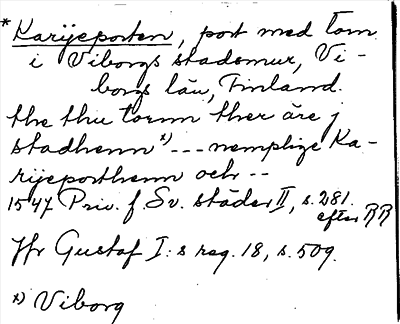 * Karijeporten, port med torn
i Viborgs stadsmur, Vi-
borgs län, Finland.
the thu tornn ther äre j
stadhenn x) --- nemplige Ka-
rijeporthenn och --
1547 Priv. f. Sv. städer II, s. 281.
efter RR
Jfr Gustaf I:s reg. 18, s. 509.
x) Viborg